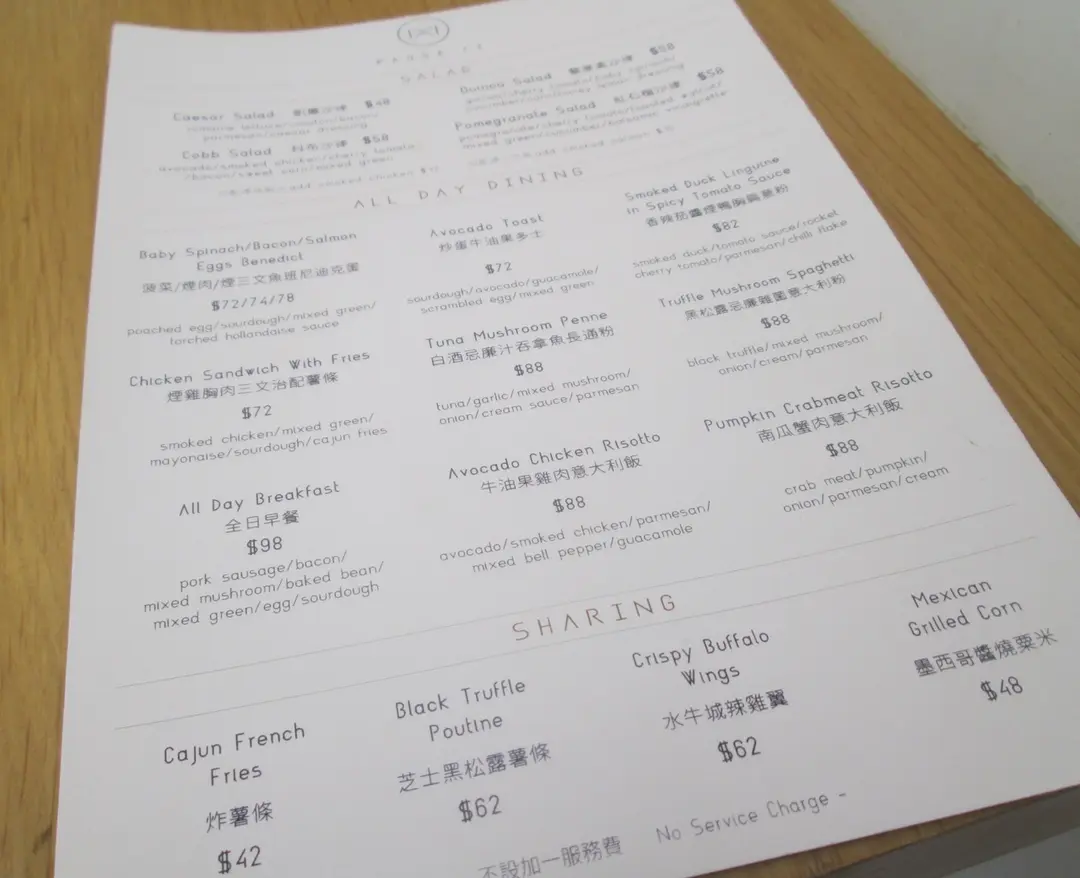 SALAD
Caesar Salad $48
Cobb Salad $58
avocado/smoked chicken/cherry tomato
/bacon/sweet corn/mixed green
Quinoa Salad 藜麥素沙律 $58
Pomegranate Salad 紅石榴沙律 $58
pomegranate/cherry tomato/toasted walnut/
mixed green/cucumber/balsamic vinaigrette
ALL DAY DINING
Baby Spinach/Bacon/Salmon
Eggs Benedict
菠菜/煙肉/煙三文魚班尼迪克蛋
$72/74/78
poached egg/sourdough/mixed green/
torched hollandaise sauce
Avocado Toast
炒蛋牛油果多士
$72
sourdough/avocado/guacamole/
scrambled egg/mixed green
Smoked Duck Linguine
in Spicy Tomato Sauce
香辣茄醬煙鴨胸扁意粉
$82
smoked duck/tomato sauce/rocket
cherry tomato/parmesan/chilli flake
Chicken Sandwich With Fries
煙雞胸肉三文治配薯條
$72
smoked chicken/mixed green/
mayonaise/sourdough/cajun fries
Tuna Mushroom Penne
白酒忌廉汁吞拿魚長通粉
$88
tuna/garlic/mixed mushroom/
onion/cream sauce/parmesan
Truffle Mushroom Spaghetti
黑松露忌廉雜菌意大利粉
$88
black truffle/mixed mushroom/
onion/cream/parmesan
All Day Breakfast
全日早餐
$98
pork sausage/bacon/
mixed mushroom/baked bean/
mixed green/egg/sourdough
Avocado Chicken Risotto
牛油果雞肉意大利飯
$88
avocado/smoked chicken/parmesan/
mixed bell pepper/guacamole
Pumpkin Crabmeat Risotto
南瓜蟹肉意大利飯
$88
crab meat/pumpkin/
onion/parmesan/cream
SHARING
Cajun French
Fries
炸薯條
$42
Black Truffle
Poutine
芝士黑松露薯條
$62
Crispy Buffalo
Wings
水牛城辣雞翼
$62
Mexican
Grilled Corn
墨西哥醬燒粟米
$48
不設加一服務費 No Service Charge -